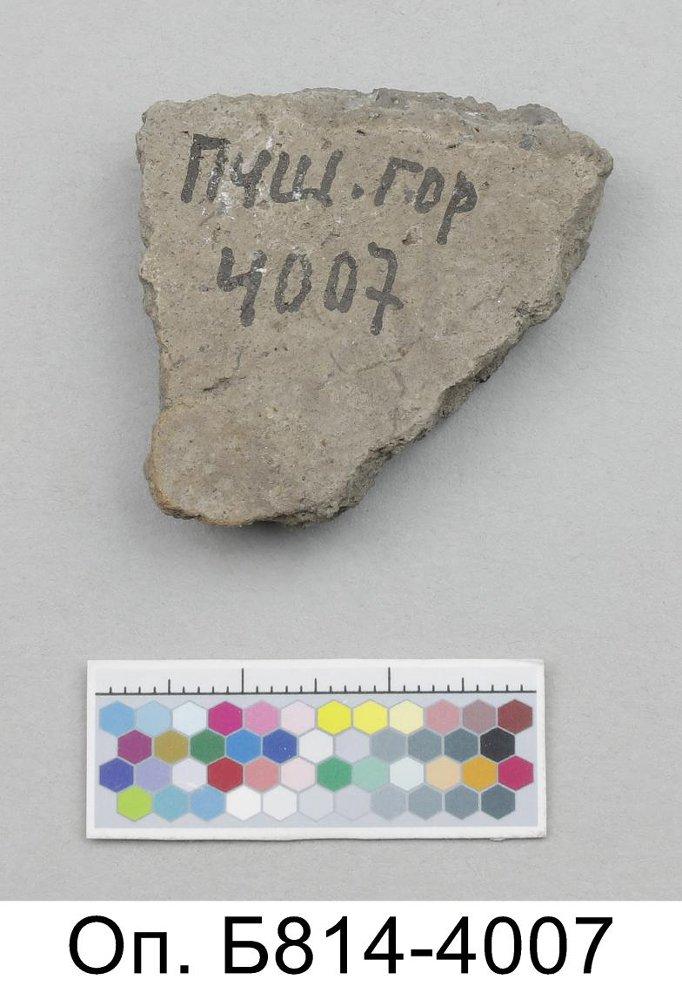 Пчщ.гор
4007
Оп. Б814-4007